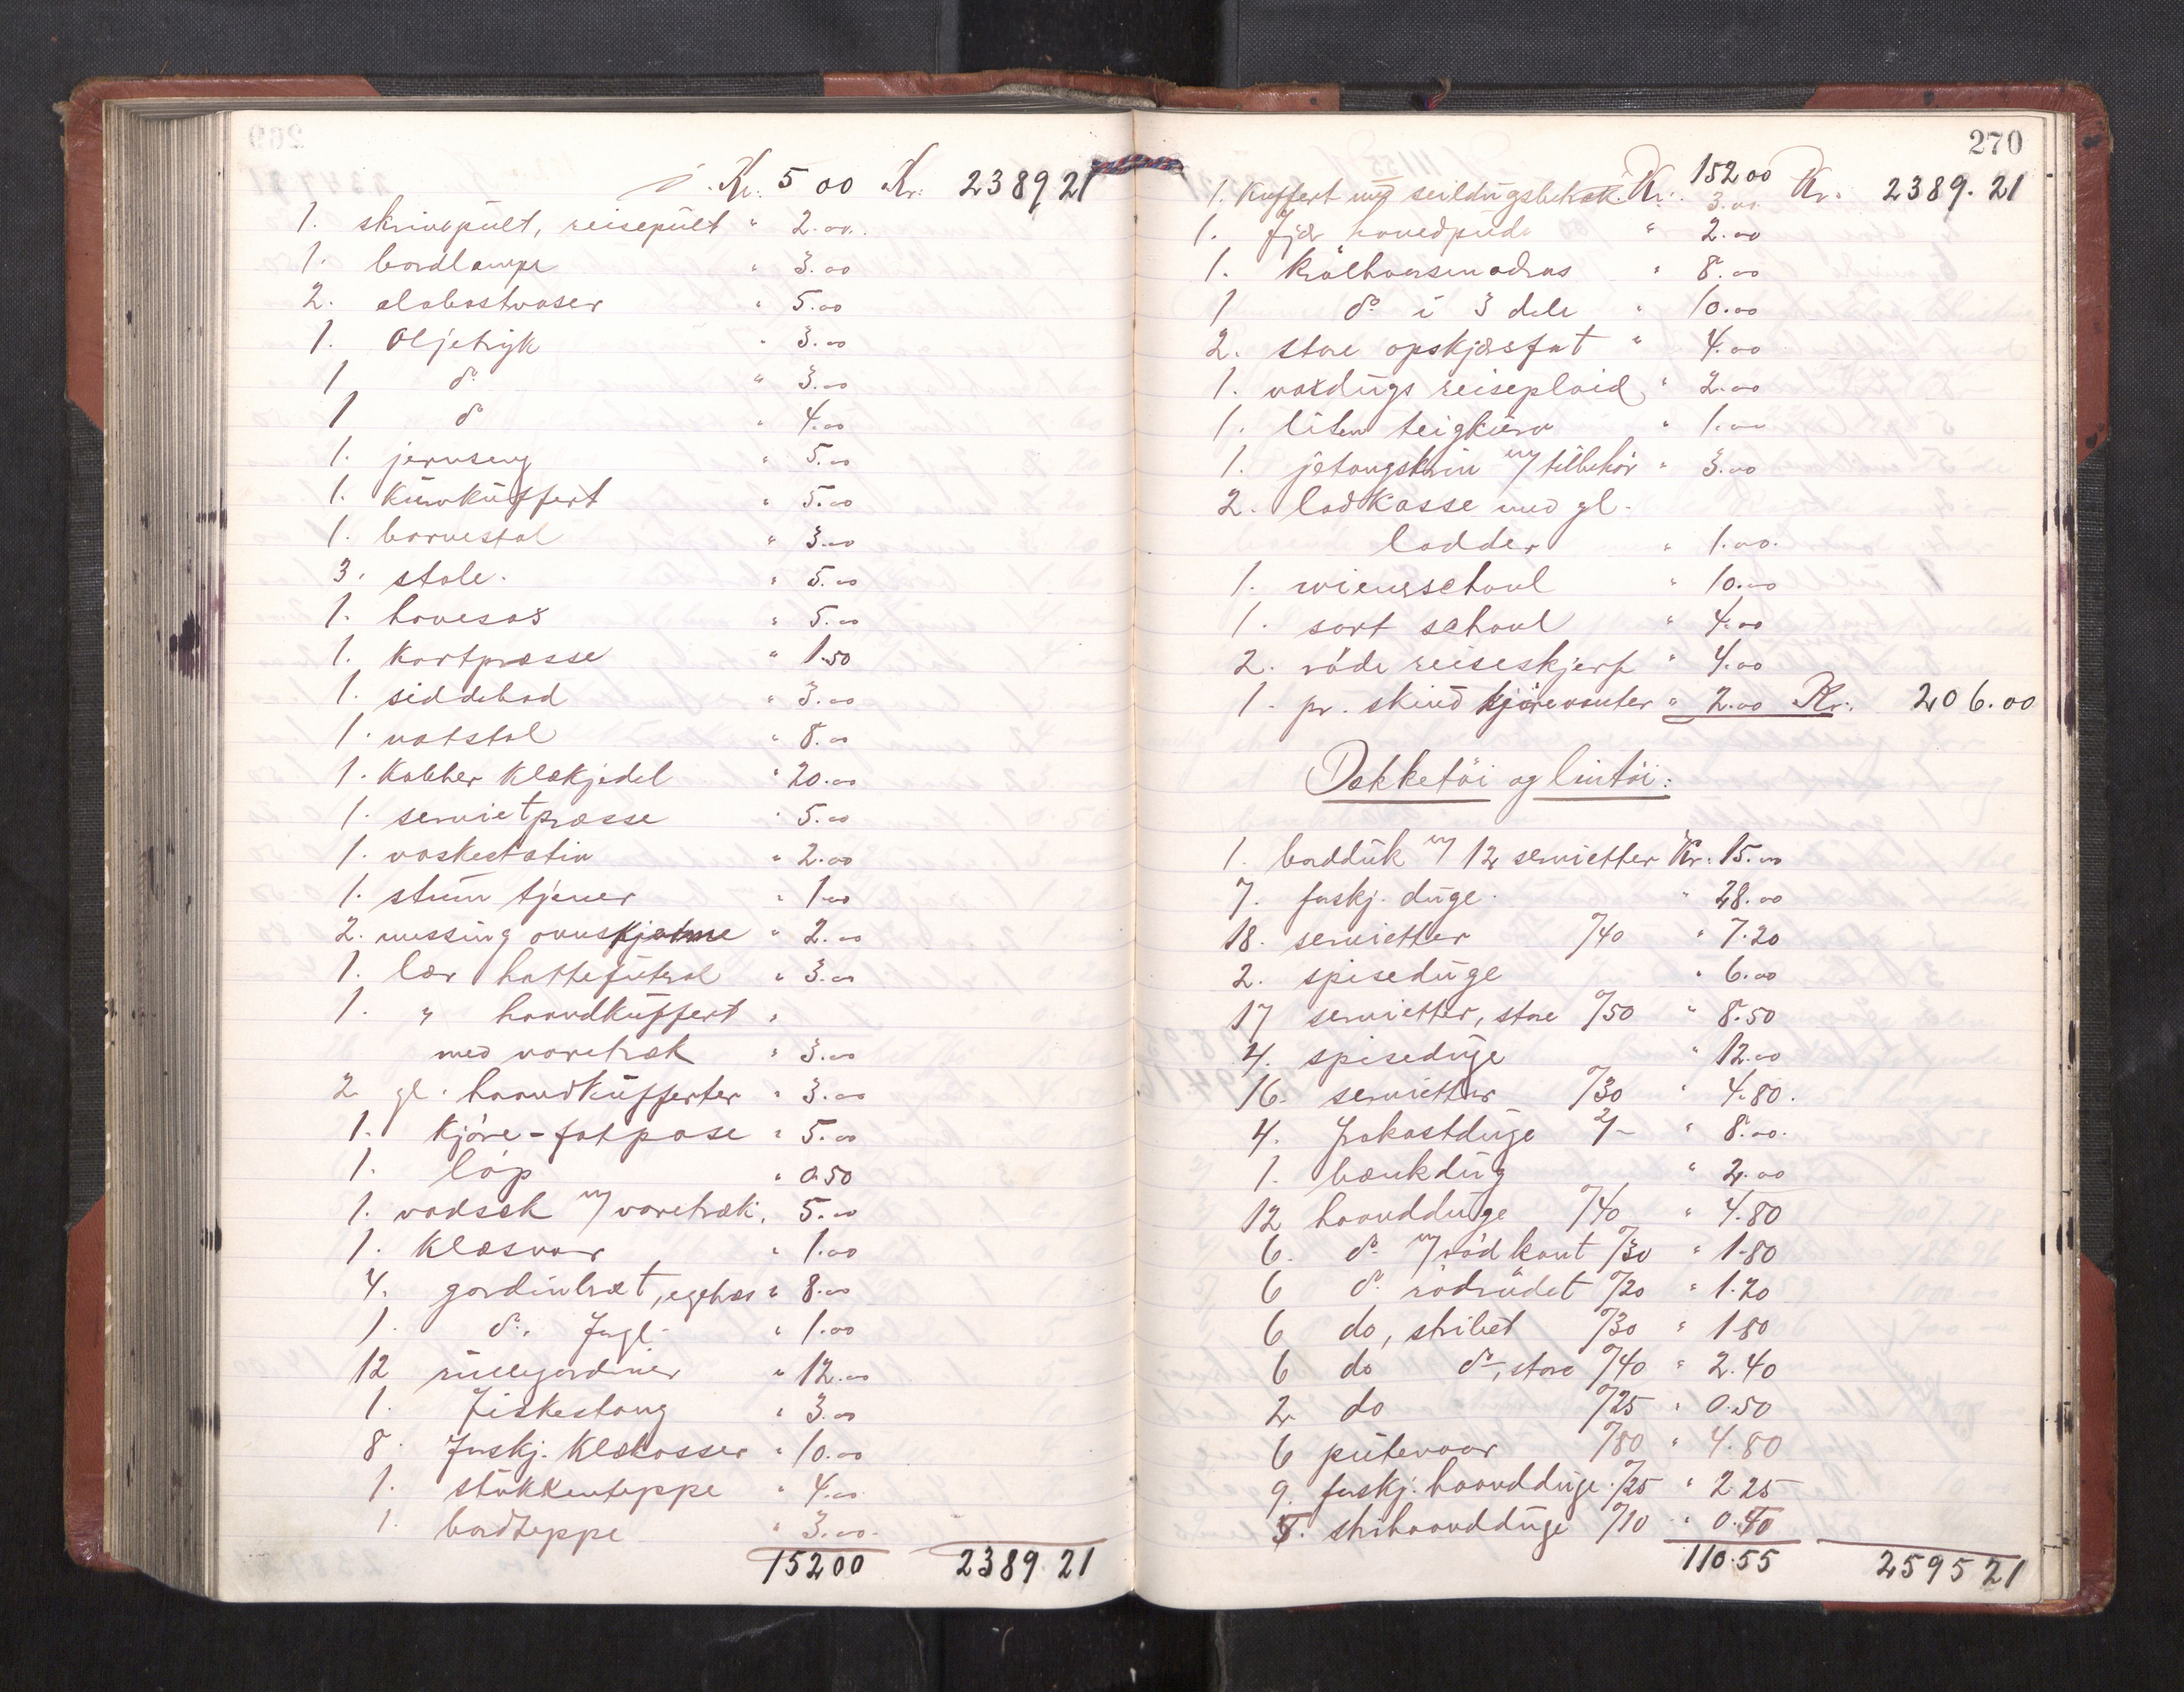 Kr. 5 00 Kr. 2389 21
1. skrivepult, reisepult " 2.00.
1. bordlampe " 3.00
2. alabastvaser " 5.00
1. Oljetryk " 3.00
1 do " 3.00
1 do " 4.00
1. jernseng " 5.00
1. Kurvkuffert " 5.00
1. barnestol " 3.00
3. stole. " 5.00
1. havesax " 5.00
1. Kortpresse " 1.50
1. siddebad " 3.00
1. natstol " 8.00
1. Kobber Klækjedel " 20.00
1. servietpresse " 5.00
1. vaskestativ " 2.00
1. stum tjener " 1.00
2. messing ovnskjerme " 2.00
1. lær hattefutral " 3.00
1. " haandkuffert "
med varetræk " 3.00
2 gl. haandkufferter " 3.00
1. kjøre-fotpose " 5.00
1. løp " 0.50
1. vadsæk m/ varetræk. 5.00
1. Klæsnor " 1.00
4. gardinbræt, egetræs " 8.00
1. do. " 1.00
12 rullegardiner " 12.00
1. Fiskestang " 3.00
8. forskj. Klækasser " 10.00
1. stukkenteppe " 4.00
1. bordteppe " 3.00.
152 00 2389 21
270
1. Kuffert m/ seildugsbetræk. Kr. 152 00 Kr. 2389. 21
3.00
1. Fjær hovedpude " 2.00
1. Krølhaarsmadras " 8.00
1 do i 3 dele " 10.00
2. store opskjærsfat " 4.00
1. voxdugs reiseplaid " 2.00
1. liten teigkurv " 1.00
1. jetongskrin m/ tilbehør " 3.00
2. ladkasse med gl.
ladder " 1.00.
1. wienerschavl " 10.00
1. sort schavl " 4.00
2. røde reiseskjerf " 4.00
1. pr. skind kjørevanter " 2.00 Kr. 206.00
Dækketøi og lintøi:
1. bordduk m/ 12 servietter Kr. 15.00
7. forskj. duge. " 28.00
18. servietter º/40 " 7.20
2. spiseduge " 6.00
17 servietter, store º/50 " 8.50
4. spiseduge " 12.00
16. servietter º/30 " 4.80.
4. Frokostduge 2/- " 8.00.
1. bænkdug " 2.00
12 haandduge º/40 " 4.80
6. do m/ rød kant º/30 " 1.80
6 do rødrudet º/20 " 1.20
6 do, stribet º/30 " 1.80
6 do do, store º/40 " 2.40
2 do º/25 " 0.50
6 putevaar º/80 " 4.80
9. forskj. haandduge º/25 " 2.25
5. strihaandduge º/10 " 0.50
110.55 2595 21